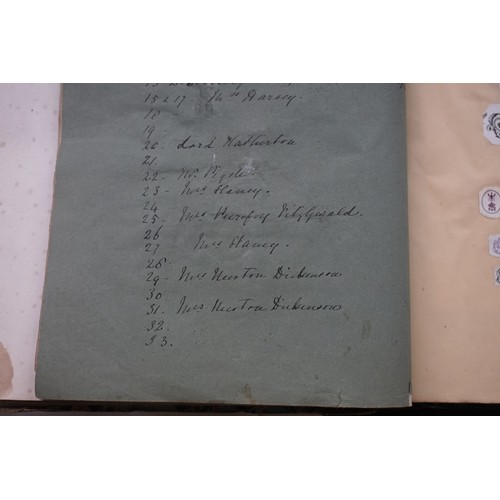 15 & 17 Mrs Darsey.
18
19
20. Lord Hatherton
21.
22 - Mr
23 - Mrs Haney.
24
25. Mrs Purefoy Fitzgerald.
26
27 Mrs Haney.
28
29 - Mrs Newton Dickenson
30
31. Mrs Newton Dickenson
32.
33.